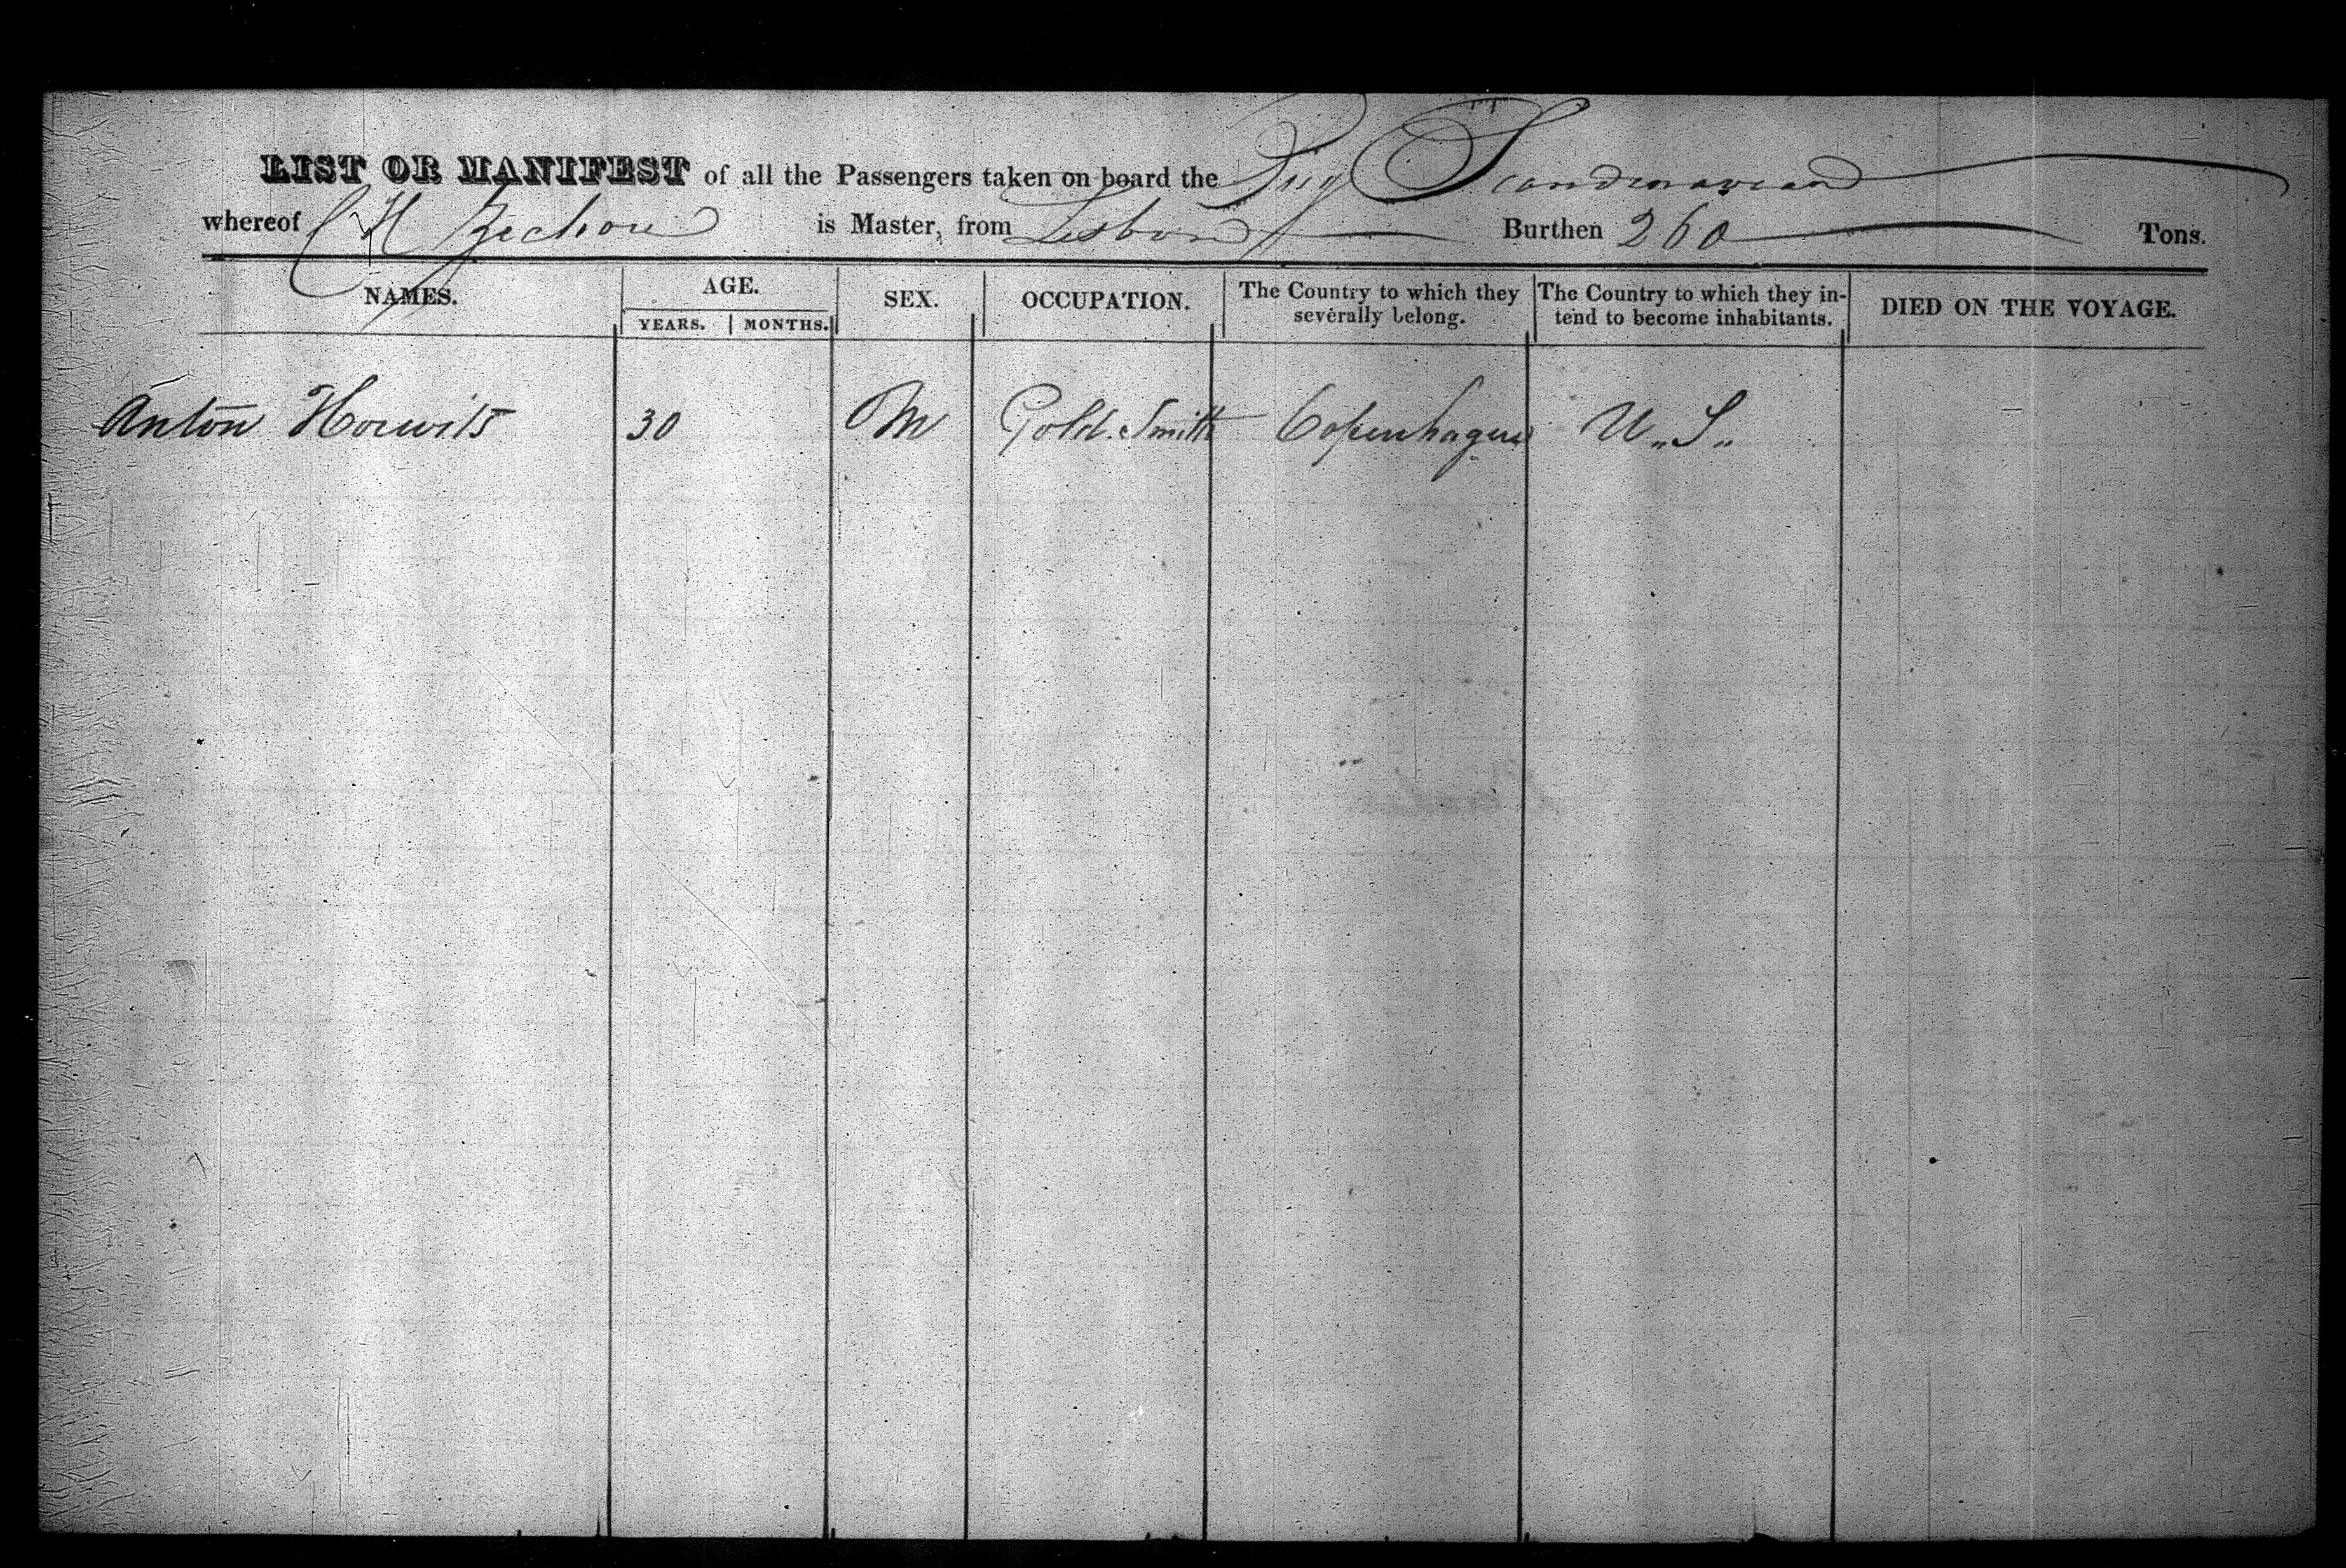 LIST OR MANIFEST of all the Passengers taken on board the Brig Scandinavian
whereof C H is Master, from Lisbon Burthen 260 Tons.
NAMES. AGE. SEX. OCCUPATION. The Country to which they severally belong. The Country to which they in-tend to become inhabitants. DIED ON THE VOYAGE.
YEARS. MONTHS.
Anton Horwits 30 M Gold.Smith Copenhagen U.S.